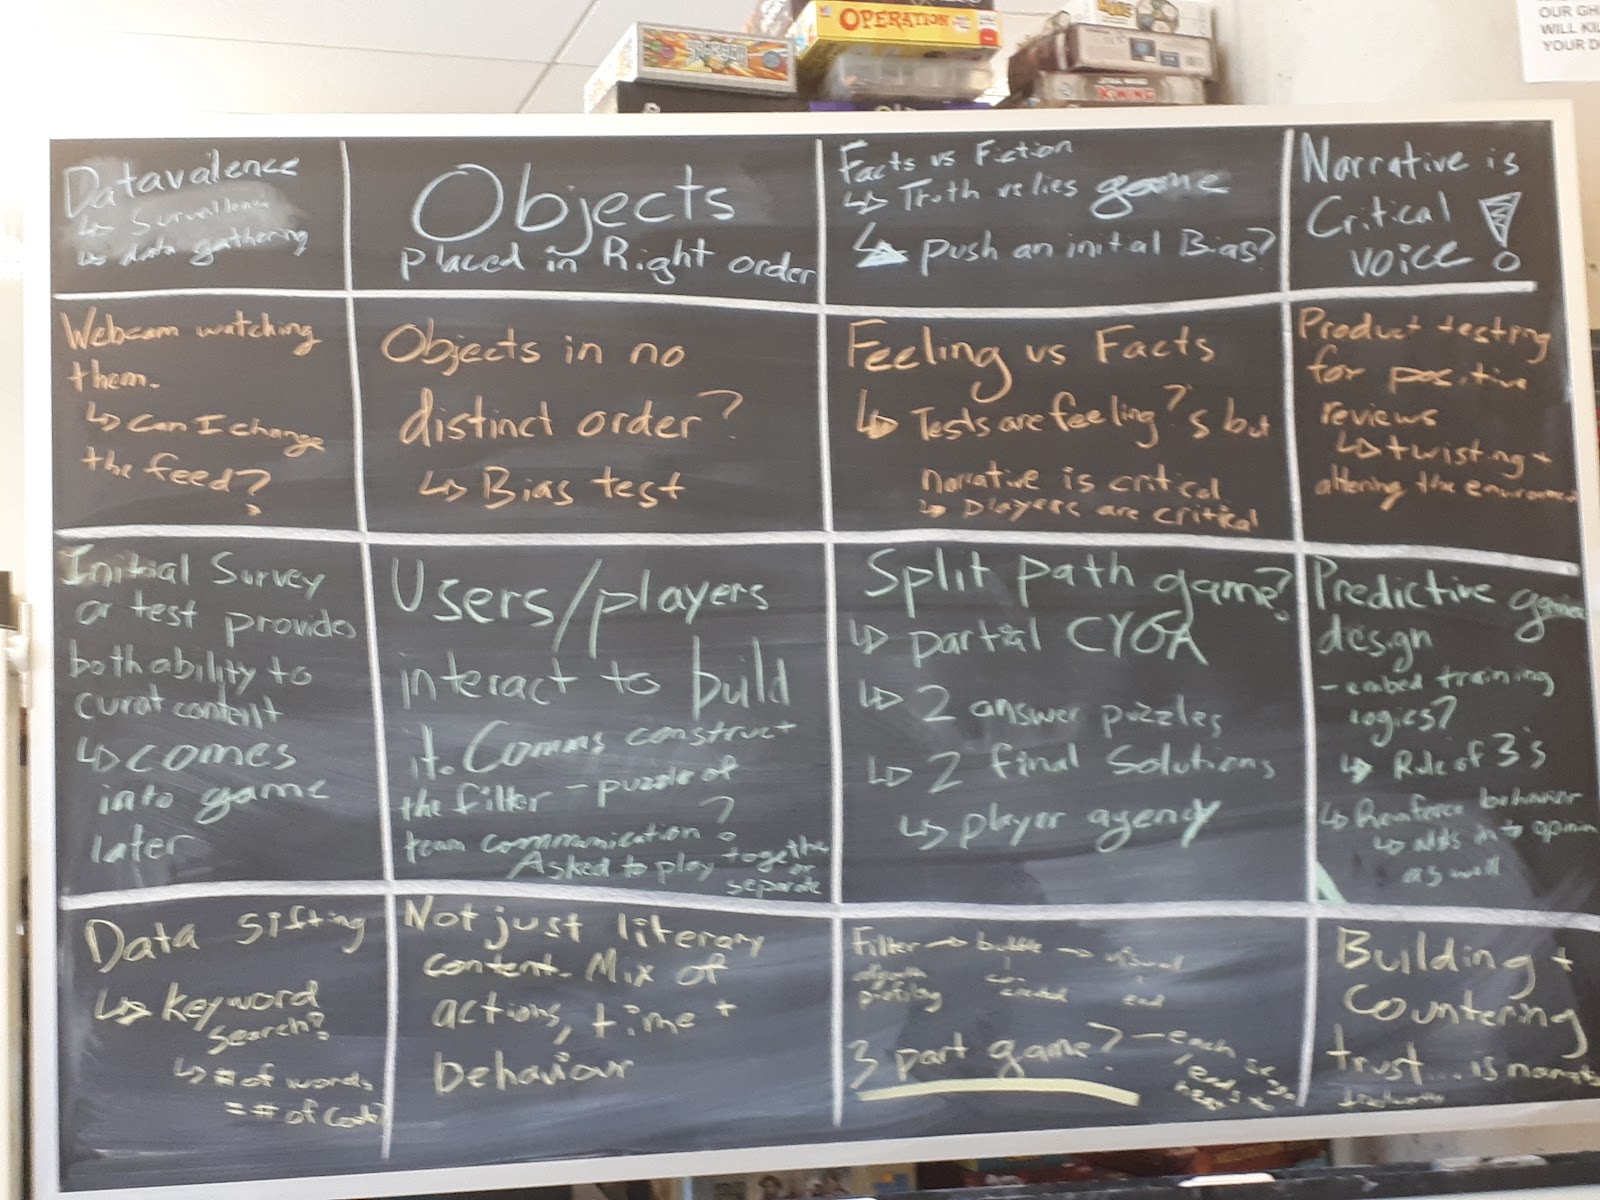 OPERATION
STAR WARS
X-WING
OUR GH
WILL KIL
YOUR D
Datavalence
↳ Survallence
↳ data gathering
Objects
placed in Right order
Facts vs Fiction
↳ Truth vs lies game
↳ push an initial Bias?
Narrative is
Critical
voice!
Webcam watching
them.
↳ Can I change
the feed?
Objects in no
distinct order?
↳ Bias test
Feeling vs Facts
↳ Tests are feeling?'s but
narrative is critical
↳ players are critical
Product testing
for positive
reviews
↳ twisting +
altering the environment
Initial Survey
or test provides
both ability to
curat content
↳ comes
into game
later
Users/players
interact to build
it. Comms construct
the filter - puzzle of
team communication?
Asked to play together or
separate
Split path game?
↳ partial CYOA
↳ 2 answer puzzles
↳ 2 final Solutions
↳ player agency
Predictive games
design
- embed training
logics?
↳ Rule of 3's
↳ Reinforce behavior
as well
Data sifting
↳ keyword
search?
↳ # of words
= # of code?
Not just literary
content. Mix of
actions, time +
behaviour
Filter → bubble → visual
profiling
end
3 part game? - each
Building +
Countering
trust... is